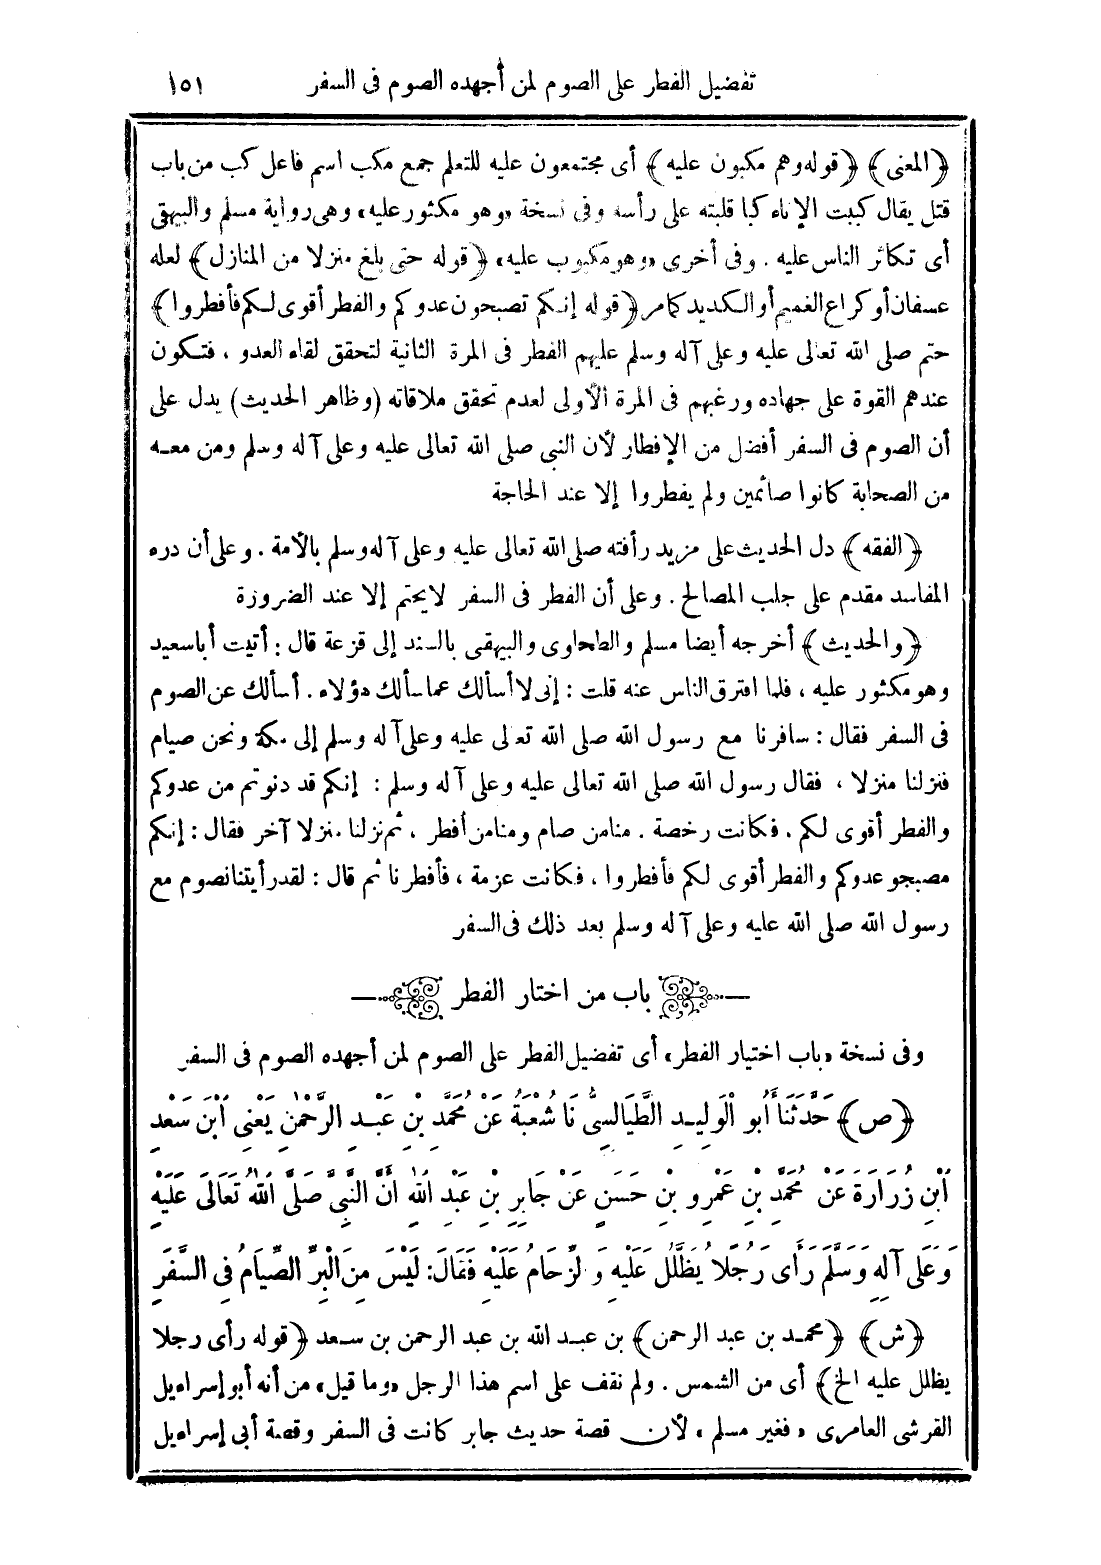 تفضيل الفطر على الصوم لمن أجهده الصوم فى السفر ١٥١
﴿المعنى﴾ ﴿قوله وهم مكبون عليه﴾ أى مجتمعون عليه للتعلم جمع مكب اسم فاعل كب من باب
قتل يقال كببت الإناء كبا قلبته على رأسه وفى نسخة «وهو مكثور عليه» وهى رواية مسلم والبيهقى
أى تكاثر الناس عليه . وفى أخرى «وهو مكبوب عليه» ﴿قوله حتى بلغ منزلا من المنازل﴾ لعله
عسفان أو كراع الغميم أو الكديد كما مر ﴿قوله إنكم تصبحون عدوكم والفطر أقوى لكم فأفطروا﴾
حتم صلى الله تعالى عليه وعلى آله وسلم عليهم الفطر فى المرة الثانية لتحقق لقاء العدو ، فتكون
عندهم القوة على جهاده ورغبهم فى المرة الأولى لعدم تحقق ملاقاته (وظاهر الحديث) يدل على
أن الصوم فى السفر أفضل من الإفطار لأن النبى صلى الله تعالى عليه وعلى آله وسلم ومن معه
من الصحابة كانوا صائمين ولم يفطروا إلا عند الحاجة
﴿الفقه﴾ دل الحديث على مزيد رأفته صلى الله تعالى عليه وعلى آله وسلم بالأمة . وعلى أن درء
المفاسد مقدم على جلب المصالح . وعلى أن الفطر فى السفر لا يحتم إلا عند الضرورة
﴿والحديث﴾ أخرجه أيضا مسلم والطحاوى والبيهقى بالسند إلى قزعة قال : أتيت أبا سعيد
وهو مكثور عليه ، فلما افترق الناس عنه قلت : إنى لا أسألك عما سألك هؤلاء . أسألك عن الصوم
فى السفر فقال : سافرنا مع رسول الله صلى الله تعالى عليه وعلى آله وسلم إلى مكة ونحن صيام
فنزلنا منزلا ، فقال رسول الله صلى الله تعالى عليه وعلى آله وسلم : إنكم قد دنوتم من عدوكم
والفطر أقوى لكم . فكانت رخصة . منا من صام ومنا من أفطر ، ثم نزلنا منزلا آخر فقال : إنكم
مصبحو عدوكم والفطر أقوى لكم فأفطروا ، فكانت عزمة ، فأفطرنا ثم قال : لقد رأيتنا نصوم مع
رسول الله صلى الله عليه وعلى آله وسلم بعد ذلك فى السفر
باب من اختار الفطر
وفى نسخة «باب اختيار الفطر» أى تفضيل الفطر على الصوم لمن أجهده الصوم فى السفر
﴿ص﴾ حَدَّثَنَا أَبُو الْوَلِيدِ الطَّيَالِسِيُّ نَا شُعْبَةُ عَنْ مُحَمَّدِ بْنِ عَبْدِ الرَّحْمٰنِ يَعْنِى ابْنَ سَعْدِ
ابْنِ زُرَارَةَ عَنْ مُحَمَّدِ بْنِ عَمْرِو بْنِ حَسَنٍ عَنْ جَابِرِ بْنِ عَبْدِ اللهِ أَنَّ النَّبِىَّ صَلَّى اللهُ تَعَالَى عَلَيْهِ
وَعَلَى آلِهِ وَسَلَّمَ رَأَى رَجُلًا يُظَلَّلُ عَلَيْهِ وَالزِّحَامُ عَلَيْهِ فَقَالَ: لَيْسَ مِنَ الْبِرِّ الصِّيَامُ فِى السَّفَرِ
﴿ش﴾ ﴿محمد بن عبد الرحمن﴾ بن عبد الله بن عبد الرحمن بن سعد ﴿قوله رأى رجلا
يظلل عليه الخ﴾ أى من الشمس . ولم نقف على اسم هذا الرجل «وما قيل» من أنه أبو إسراءيل
القرشى العامرى «فغير مسلم» لأن قصة حديث جابر كانت فى السفر وقصة أبى إسراءيل